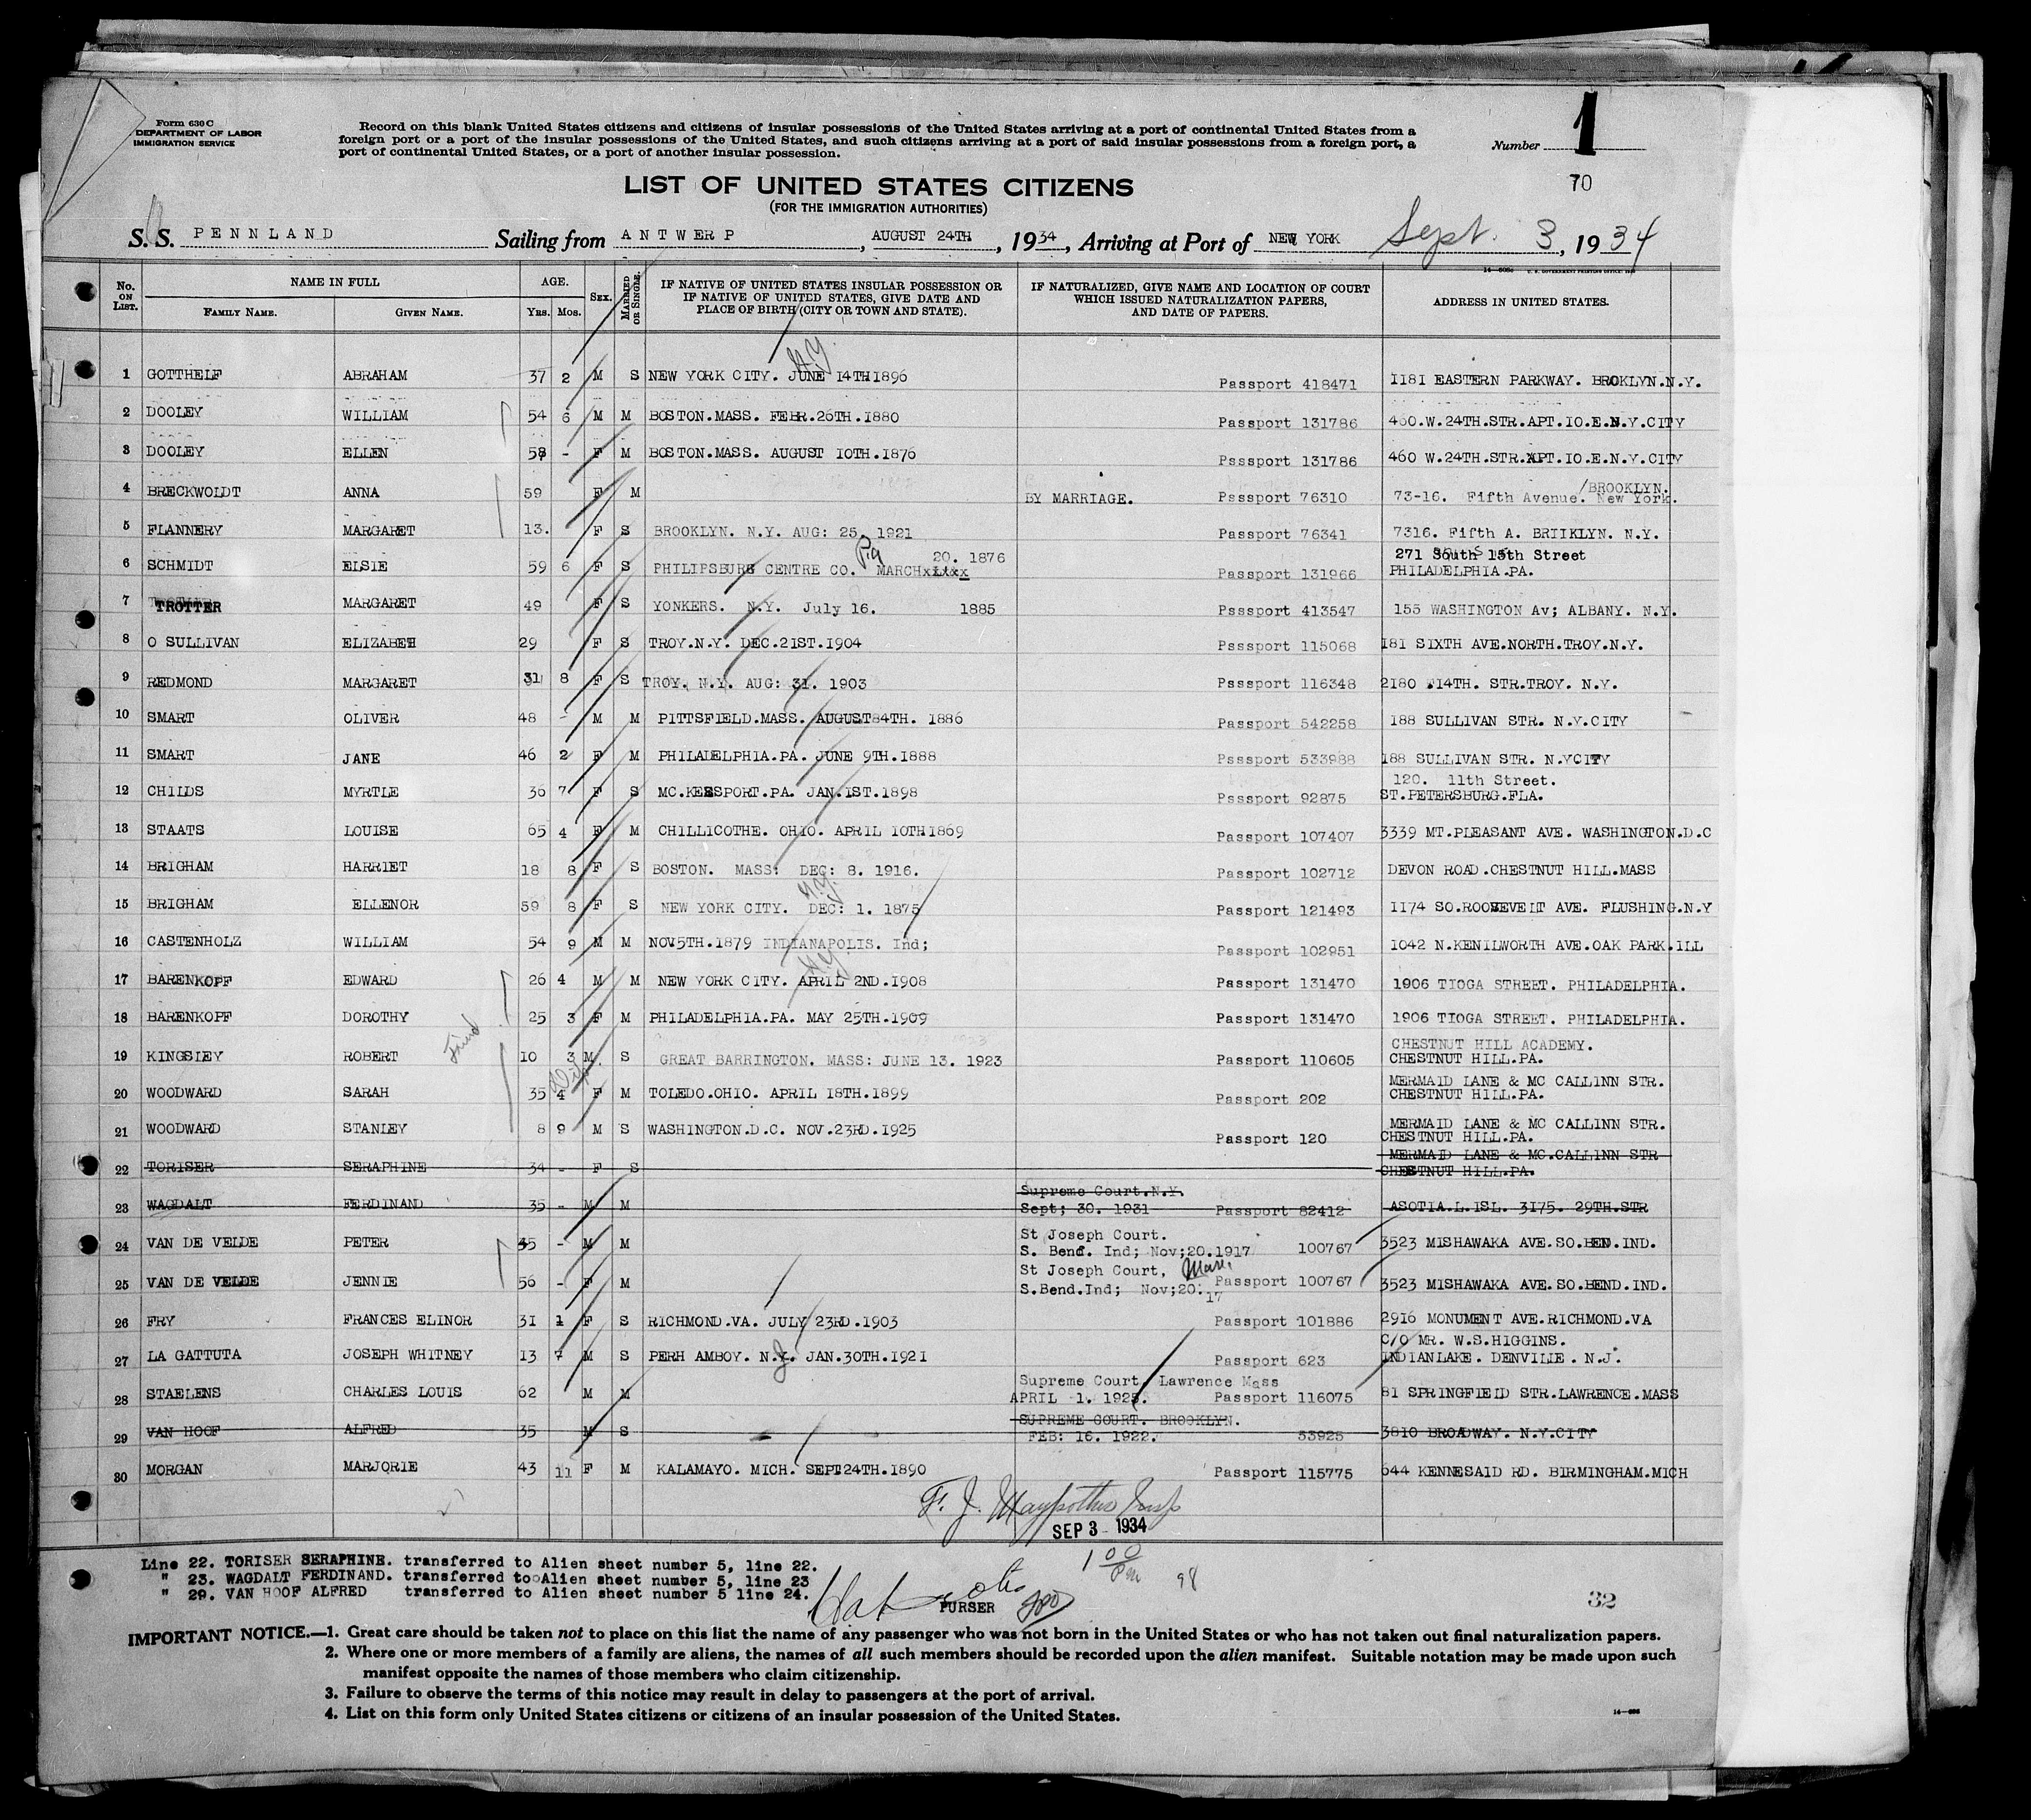 Form 630 C
DEPARTMENT OF LABOR
IMMIGRATION SERVICE
Record on this blank United States citizens and citizens of insular possessions of the United States arriving at a port of continental United States from a
foreign port or a port of the insular possessions of the United States, and such citizens arriving at a port of said insular possessions from a foreign port, a
port of continental United States, or a port of another insular possession.
Number 1
70
LIST OF UNITED STATES CITIZENS
(FOR THE IMMIGRATION AUTHORITIES)
S. S. PENNLAND Sailing from ANTWERP, AUGUST 24TH, 1934, Arriving at Port of NEW YORK Sept. 3, 1934
No. ON LIST. NAME IN FULL FAMILY NAME. GIVEN NAME. AGE. YRS. MOS. SEX. MARRIED OR SINGLE. IF NATIVE OF UNITED STATES INSULAR POSSESSION OR IF NATIVE OF UNITED STATES, GIVE DATE AND PLACE OF BIRTH (CITY OR TOWN AND STATE). IF NATURALIZED, GIVE NAME AND LOCATION OF COURT WHICH ISSUED NATURALIZATION PAPERS, AND DATE OF PAPERS. ADDRESS IN UNITED STATES.
1 GOTTHELF ABRAHAM 37 2 M S NEW YORK CITY. JUNE 14TH 1896 Passport 418471 1181 EASTERN PARKWAY. BROKLYN.N.Y.
2 DOOLEY WILLIAM 54 6 M M BOSTON.MASS. FEBR.26TH.1880 Passport 131786 460.W.24TH.STR.APT.10.E.N.Y.CITY
3 DOOLEY ELLEN 58 - F M BOSTON.MASS. AUGUST 10TH.1876 Psssport 131786 460 W.24TH.STR.APT.10.E.N.Y.CITY
4 BRECKWOLDT ANNA 59 F M BY MARRIAGE. Psssport 76310 73-16. Fifth Avenue. New York. /BROOKLYN.
5 FLANNERY MARGARET 13. F S BROOKLYN. N.Y. AUG: 25. 1921 Passport 76341 7316. Fifth A. BRIIKLYN. N.Y.
6 SCHMIDT ELSIE 59 6 F S PHILIPSBURG CENTRE CO. Pa MARCH 20. 1876 Passport 131966 271 South 15th Street PHILADELPHIA.PA.
7 TROTTER MARGARET 49 F S YONKERS. N.Y. July 16. 1885 Passport 413547 155 WASHINGTON Av; ALBANY. N.Y.
8 O SULLIVAN ELIZABEH 29 F S TROY.N.Y. DEC.21ST.1904 Psssport 115068 181 SIXTH AVE.NORTH.TROY.N.Y.
9 REDMOND MARGARET 31 8 F S TROY. N.Y. AUG: 31. 1903 Psssport 116348 2180 14TH. STR.TROY. N.Y.
10 SMART OLIVER 48 - M M PITTSFIELD.MASS. AUGUST 84TH. 1886 Passport 542258 188 SULLIVAN STR. N.Y.CITY
11 SMART JANE 46 2 F M PHILADELPHIA.PA. JUNE 9TH.1888 Psssport 533988 188 SULLIVAN STR. N.YCITY
12 CHILDS MYRTLE 36 7 F S MC.KEESPORT.PA. JAN.1ST.1898 Psssport 92875 120. 11th Street. ST.PETERSBURG.FLA.
13 STAATS LOUISE 65 4 F M CHILLICOTHE. OHIO. APRIL 10TH 1869 Psssport 107407 3339 MT.PLEASANT AVE. WASHINGTON.D.C
14 BRIGHAM HARRIET 18 8 F S BOSTON. MASS: DEC: 8. 1916. Passport 102712 DEVON ROAD.CHESTNUT HILL.MASS
15 BRIGHAM ELLENOR 59 8 F S NEW YORK CITY. DEC: 1. 1875 Passport 121493 1174 SO.ROOSEVELT AVE. FLUSHING.N.Y
16 CASTENHOLZ WILLIAM 54 9 M M NOV5TH.1879 INDIANAPOLIS. Ind; Passport 102951 1042 N.KENILWORTH AVE.OAK PARK.ILL
17 BARENKOPF EDWARD 26 4 M M NEW YORK CITY. APRIL 2ND.1908 Passport 131470 1906 TIOGA STREET. PHILADELPHIA.
18 BARENKOPF DOROTHY 25 3 F M PHILADELPHIA.PA. MAY 25TH.1909 Passport 131470 1906 TIOGA STREET. PHILADELPHIA.
19 KINGSLEY ROBERT 10 3 M. S GREAT BARRINGTON. MASS: JUNE 13. 1923 Passport 110605 CHESTNUT HILL ACADEMY. CHESTNUT HILL.PA.
20 WOODWARD SARAH 35 4 F M TOLEDO.OHIO. APRIL 18TH.1899 Passport 202 MERMAID LANE & MC CALLINN STR. CHESTNUT HILL.PA.
21 WOODWARD STANLEY 8 9 M S WASHINGTON.D.C. NOV.23RD.1925 Passport 120 MERMAID LANE & MC CALLINN STR. CHESTNUT HILL.PA.
22 TORISER SERAPHINE 34 - F S MERMAID LANE & MC.CALLINN STR CHESTNUT HILL.PA.
23 WAGDALT FERDINAND 35 - M M Supreme Court.N.Y. Sept; 30. 1931 Passport 82412 ASOTIA.L.ISL. 3175. 29TH.STR
24 VAN DE VELDE PETER 35 - M M St Joseph Court. S. Bend. Ind; Nov;20.1917 100767 3523 MISHAWAKA AVE.SO.BEND.IND.
25 VAN DE VELDE JENNIE 56 - F M St Joseph Court, S.Bend.Ind; Nov;20.17 Passport 100767 3523 MISHAWAKA AVE.SO.BEND.IND.
26 FRY FRANCES ELINOR 31 1 F S RICHMOND.VA. JULY 23RD.1903 Passport 101886 2916 MONUMENT AVE.RICHMOND.VA
27 LA GATTUTA JOSEPH WHITNEY 13 7 M S PERH AMBOY. N.J. JAN.30TH.1921 Passport 623 C/O MR. W.S.HIGGINS. INDIANLAKE. DENVILLE. N.J.
28 STAELENS CHARLES LOUIS 62 M M Supreme Court. Lawrence Mass APRIL 1. 1925. Passport 116075 81 SPRINGFIELD STR.LAWRENCE.MASS
29 VAN HOOF ALFRED 35 M S SUPREME COURT. BROOKLYN. FEB: 16. 1922. 53925 3810 BROADWAY. N.Y.CITY
30 MORGAN MARJORIE 43 11 F M KALAMAYO. MICH. SEPT24TH.1890 Passport 115775 644 KENNESAID RD. BIRMINGHAM.MICH
SEP 3 - 1934
Line 22. TORISER SERAPHINE. transferred to Alien sheet number 5, line 22.
" 23. WAGDALT FERDINAND. transferred to Alien sheet number 5, line 23
" 29. VAN HOOF ALFRED transferred to Alien sheet number 5 line 24.
1 00 Pm 98
PURSER
32
IMPORTANT NOTICE.—1. Great care should be taken not to place on this list the name of any passenger who was not born in the United States or who has not taken out final naturalization papers.
2. Where one or more members of a family are aliens, the names of all such members should be recorded upon the alien manifest. Suitable notation may be made upon such
manifest opposite the names of those members who claim citizenship.
3. Failure to observe the terms of this notice may result in delay to passengers at the port of arrival.
4. List on this form only United States citizens or citizens of an insular possession of the United States.